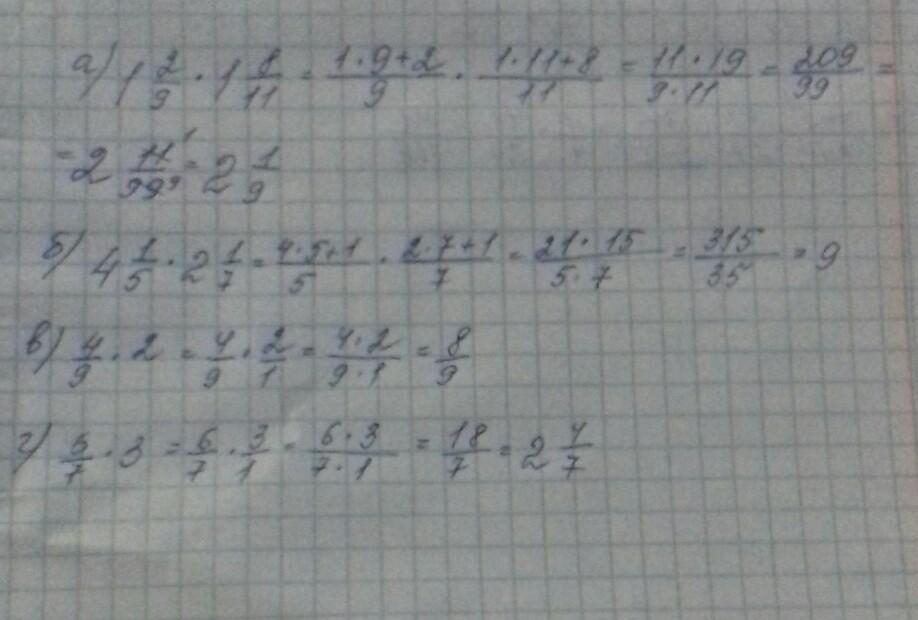 а) 1 2/9 · 1 8/11 = (1·9+2)/9 · (1·11+8)/11 = (11·19)/(9·11) = 209/99 =
= 2 11/99 = 2 1/9
б) 4 1/5 · 2 1/7 = (4·5+1)/5 · (2·7+1)/7 = (21·15)/(5·7) = 315/35 = 9
в) 4/9 · 2 = 4/9 · 2/1 = (4·2)/(9·1) = 8/9
г) 6/7 · 3 = 6/7 · 3/1 = (6·3)/(7·1) = 18/7 = 2 4/7